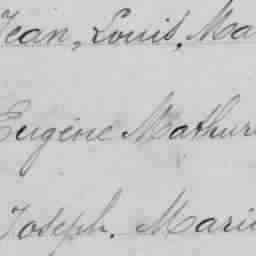 Jean, Louis, Ma
Eugène Mathur
Joseph. Marie